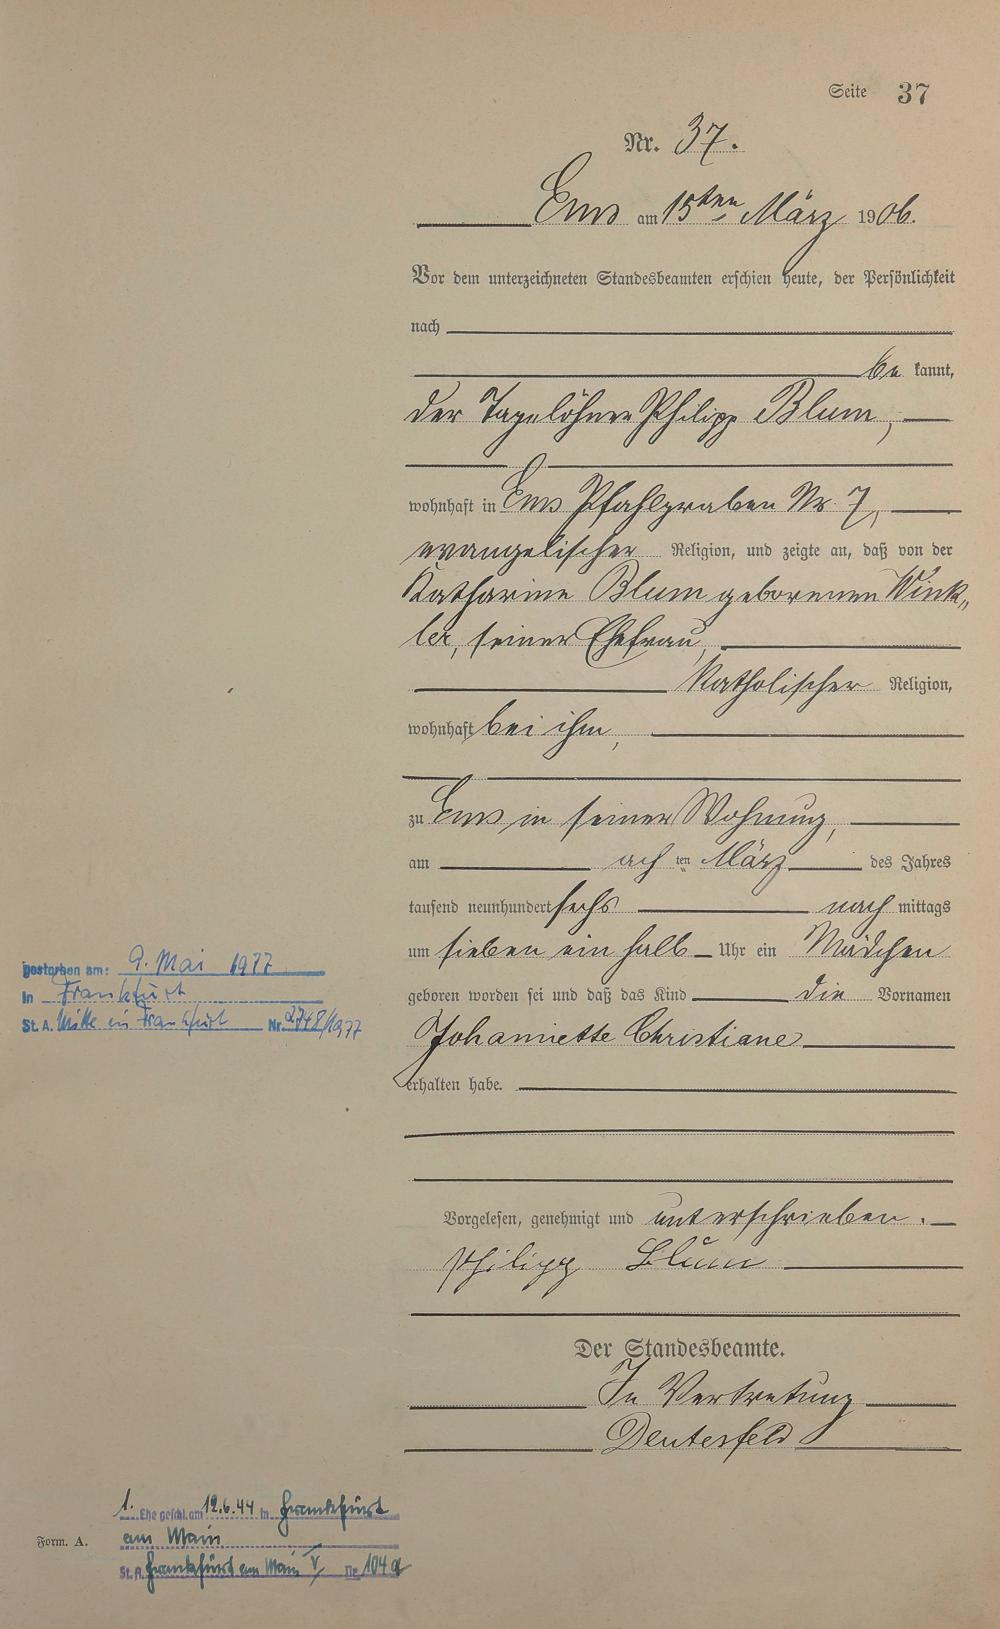 Seite 37
Nr. 37.
Ems am 15ten März 1906.
Vor dem unterzeichneten Standesbeamten erschien heute, der Persönlichkeit
nach
be kannt,
der Tagelöhner Philipp Blum,
wohnhaft in Ems Pfahlgraben Nr 7,
evangelischer Religion, und zeigte an, daß von der
Katharine Blum geborenen Wink„
ler, seiner Ehefrau,
katholischer Religion,
wohnhaft bei ihm,
zu Ems in seiner Wohnung,
am ach ten März des Jahres
tausend neunhundert sechs nach mittags
um sieben ein halb Uhr ein Mädchen
geboren worden sei und daß das Kind die Vornamen
Johannette Christiane
erhalten habe.
Vorgelesen, genehmigt und unterschrieben.
Philipp Blum
Der Standesbeamte.
In Vertretung
Deutesfeld
gestorben am: 9. Mai 1977
in Frankfurt
St. A. Mitte in Frankfurt Nr. 2748/1977
1. Ehe geschl. am 12.6.44 in Frankfurt
am Main
St. A. Frankfurt am Main V/ Nr. 104
Form. A.